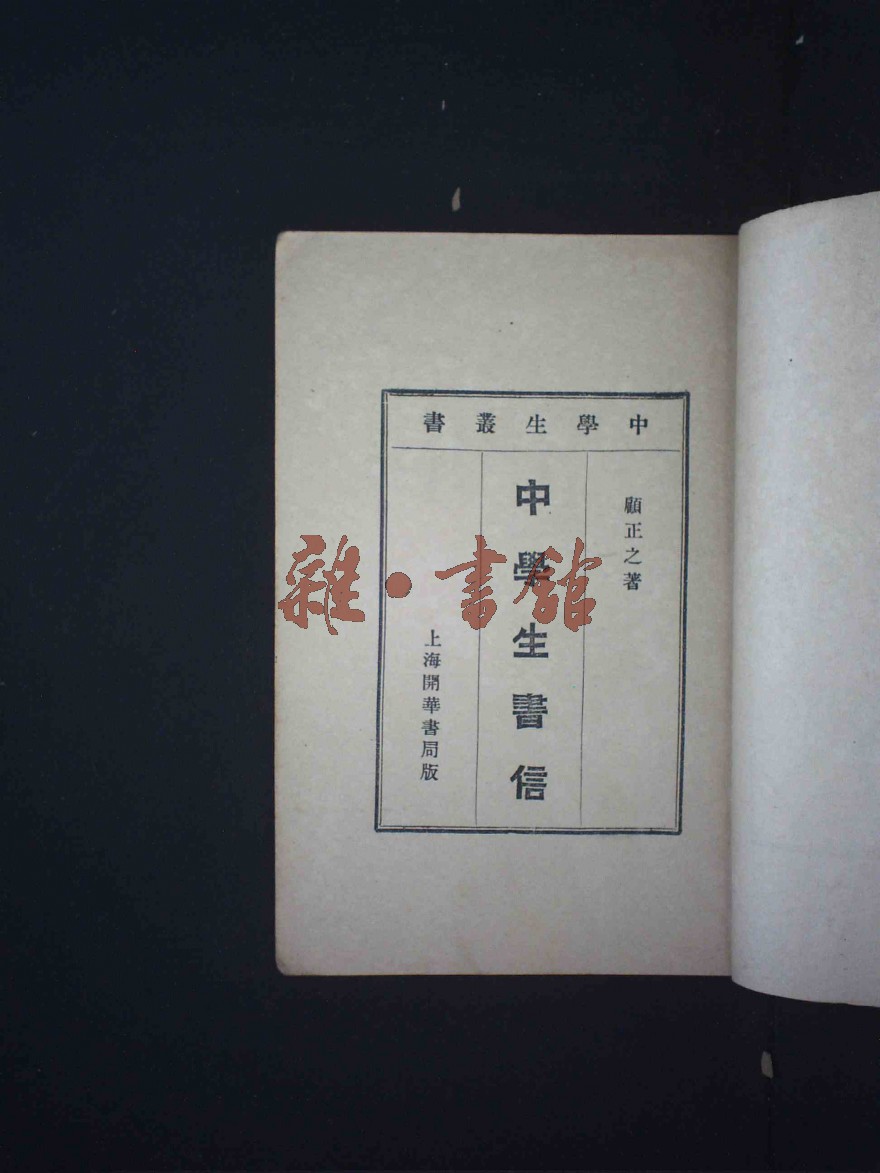 中學生叢書
顧正之著
中學生書信
上海開華書局版
雜·書館